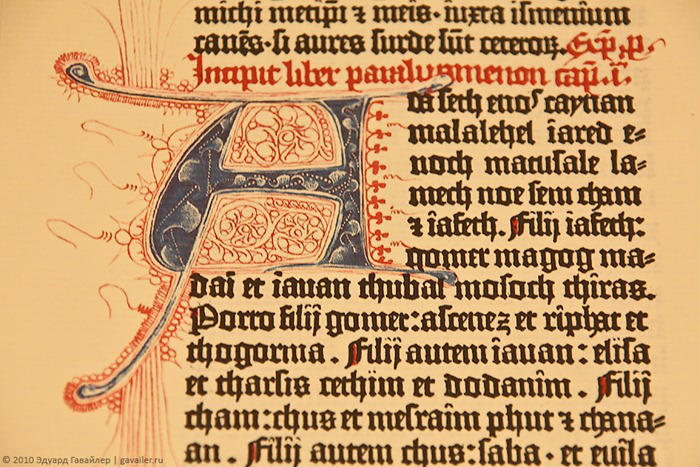 michi metip̄i ⁊ meis · iuxta ismenium
canēs · si aures surde sūt ceteroꝝ. Exp̄. p̄.
Incipit liber paralypmenon cap̄. i.
Adā seth enos caynan
malalehel iared e-
noch matusale la-
mech noe sem cham
⁊ iafeth. Filij iafeth:
gomer magog ma-
dai et iauan thubal mosoch thiras.
Porro filij gomer: ascenez et riphat et
thogorma. Filij autem iauan: elisa
et tharsis cethim et dodanim. Filij
cham: chus et mesraim phut ⁊ chana-
an. Filij autem chus: saba · et euila
© 2010 Эдуард Гавайлер | gavailer.ru